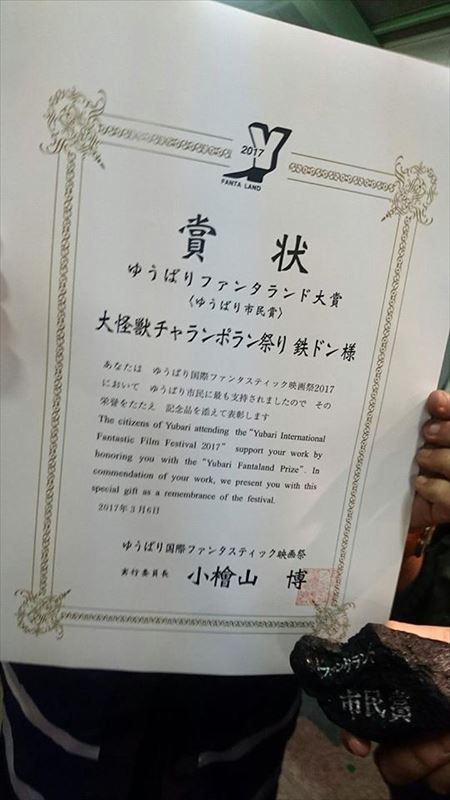 2017
FANTA LAND
賞状
ゆうばりファンタランド大賞
〈ゆうばり市民賞〉
大怪獣チャランポラン祭り 鉄ドン様
あなたは ゆうばり国際ファンタスティック映画祭2017
において ゆうばり市民に最も支持されましたので その
栄誉をたたえ 記念品を添えて表彰します
The citizens of Yubari attending the "Yubari International
Fantastic Film Festival 2017" support your work by
honoring you with the "Yubari Fantaland Prize". In
commendation of your work, we present you with this
special gift as a remembrance of the festival.
2017年3月6日
ゆうばり国際ファンタスティック映画祭
実行委員長 小檜山 博
ファンタランド
市民賞